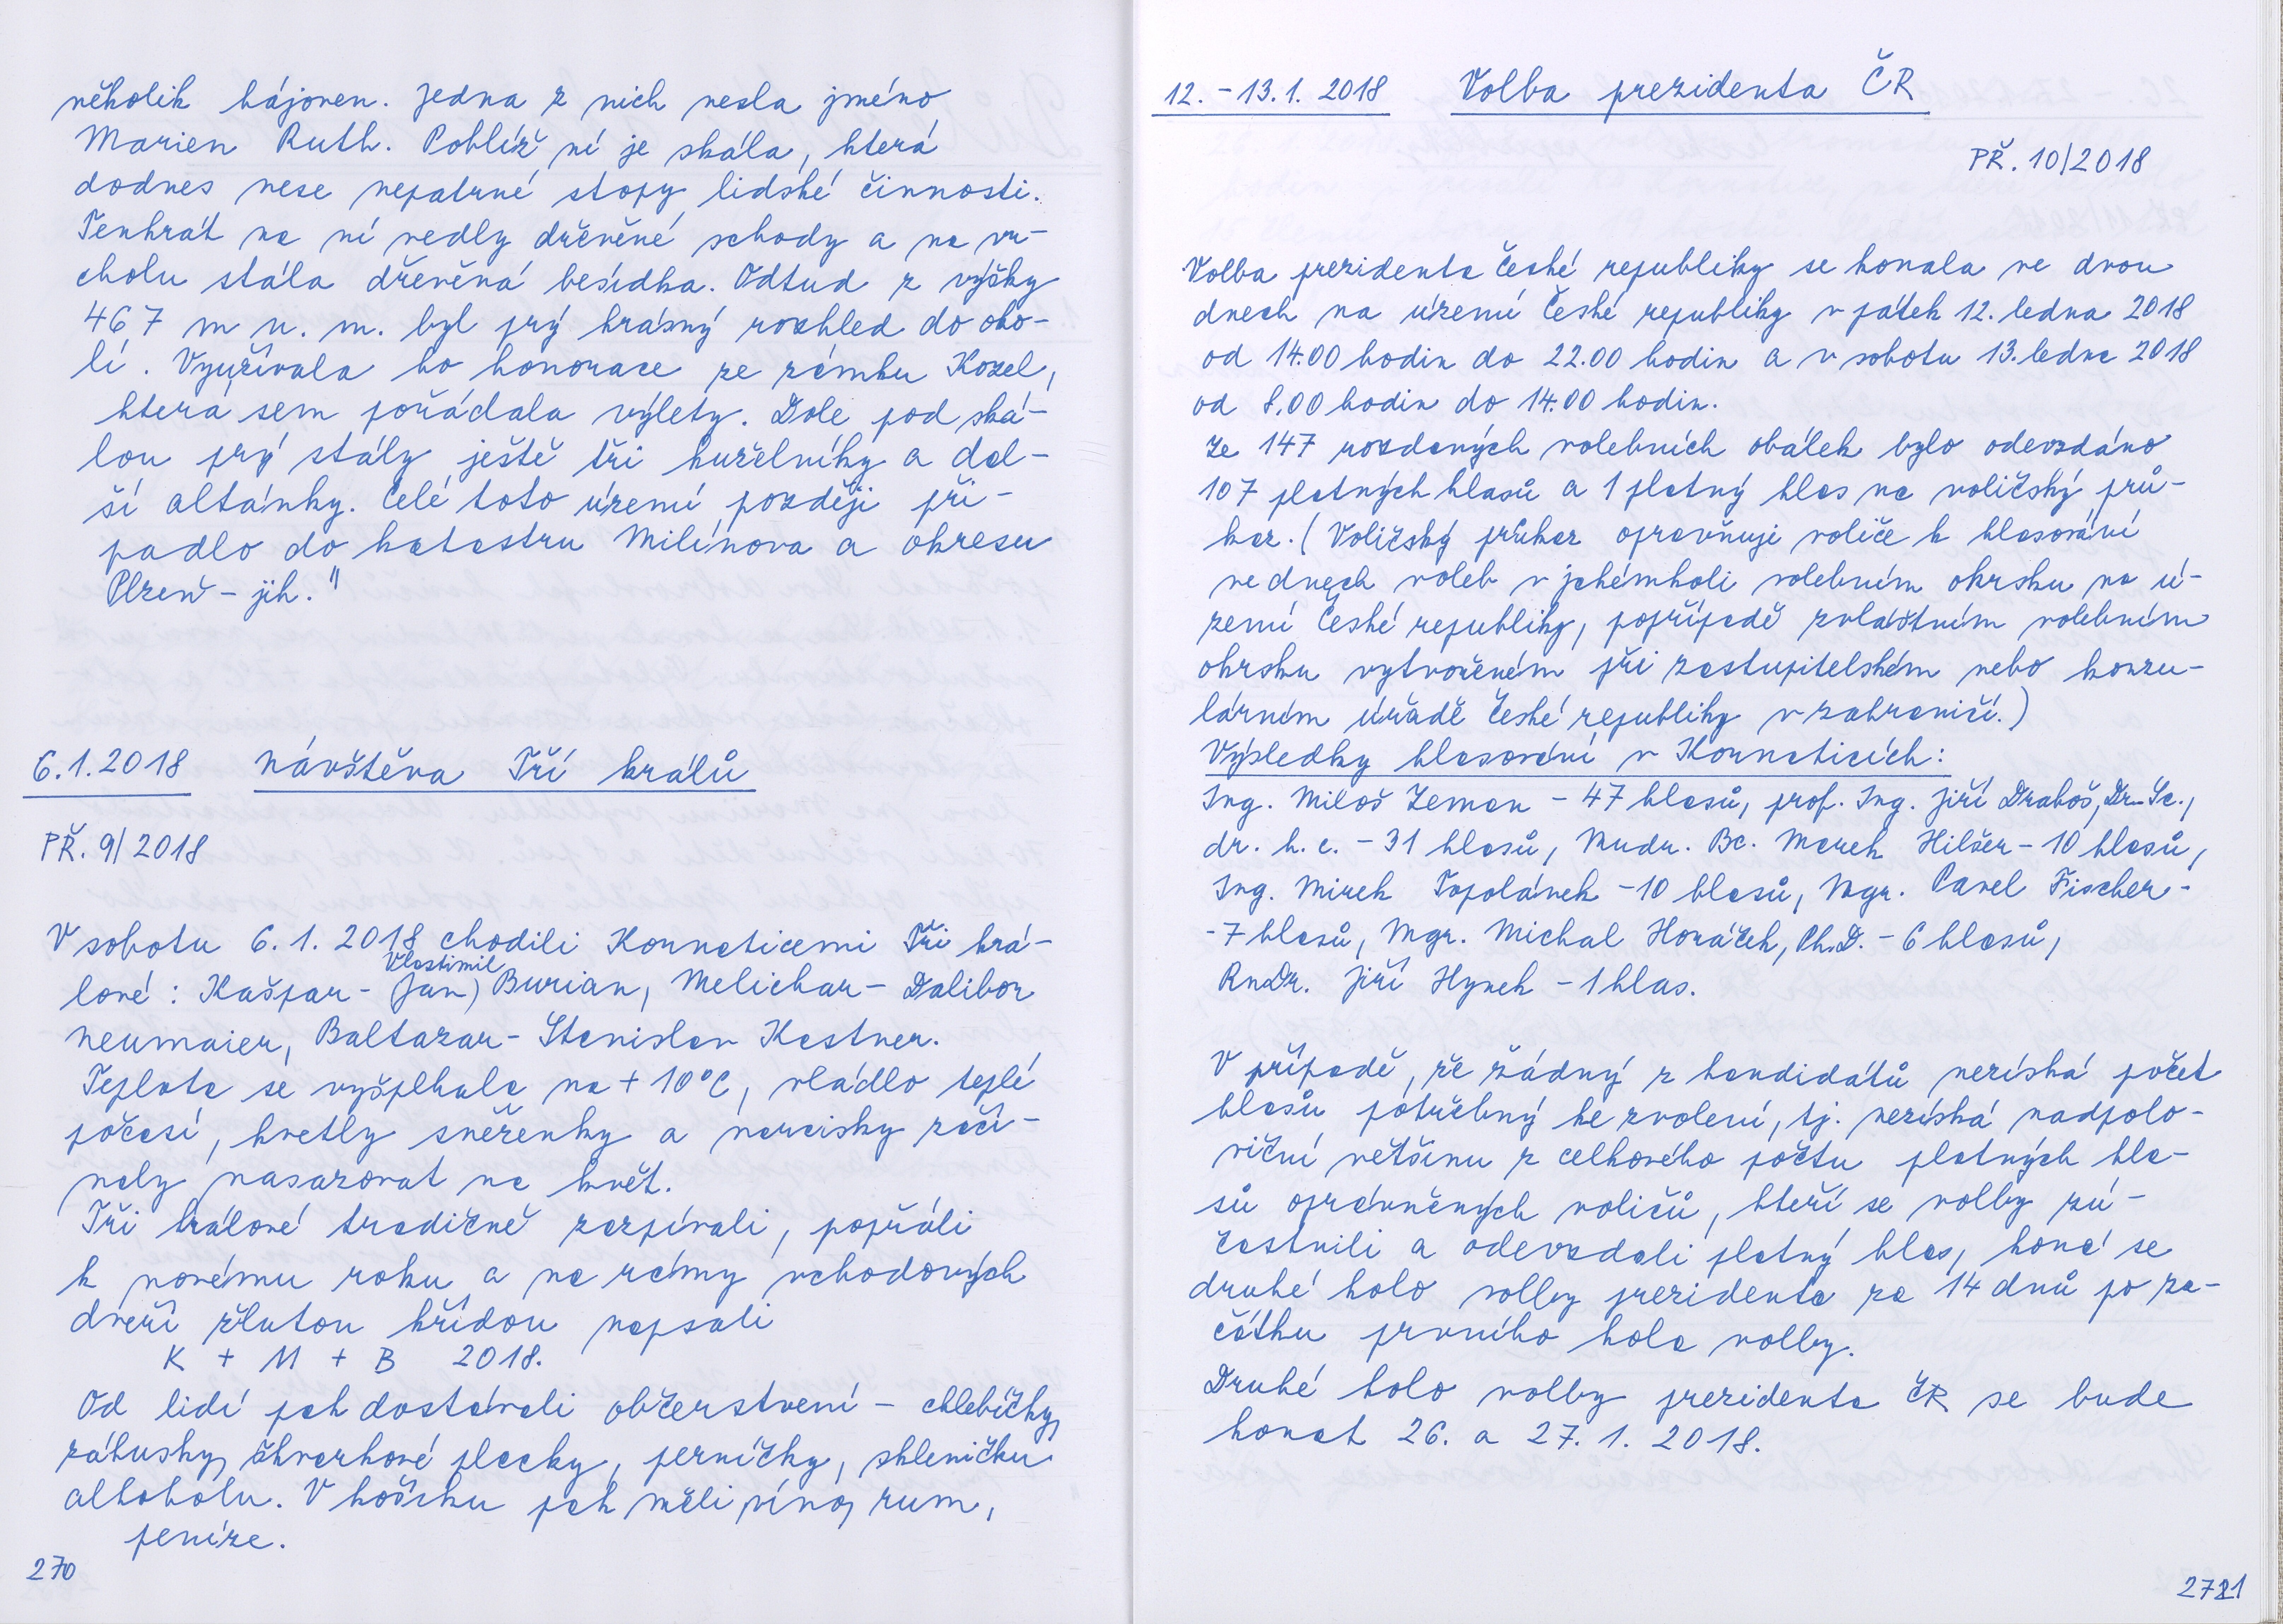 několik hájoven. Jedna z nich nesla jméno
Marien Ruth. Poblíž ní je skála, která
dodnes nese nepatrné stopy lidské činnosti.
Tenkrát na ní vedly dřevěné schody a na vr-
cholu stála dřevěná besídka. Odtud z výšky
467 m n. m. byl prý krásný rozhled do oko-
lí. Využívala ho honorace ze zámku Kozel,
která sem pořádala výlety. Dole pod ská-
lou prý stály ještě tři kuželníky a dal-
ší altánky. Celé toto území později při-
padlo do katastru Milínova a okresu
Plzeň - jih."
6.1.2018 Návštěva Tří králů
PŘ. 9/2018
V sobotu 6. 1. 2018 chodili Kornaticemi Tři krá-
Vlastimil
lové: Kašpar - (Jan) Burian, Melichar - Dalibor
Neumaier, Baltazar - Stanislav Kastner.
Teplota se vyšplhala na + 10°C, vládlo teplé
počasí, kvetly sněženky a narcisky začí-
naly nasazovat na květ.
Tři králové tradičně zazpívali, popřáli
k novému roku a na rámy vchodových
dveří žlutou křídou napsali
K + M + B 2018.
Od lidí pak dostávali občerstvení - chlebíčky,
zákusky, škvarkové placky, perníčky, skleničku
alkoholu. V košíku pak měli víno, rum,
peníze.
270
12. - 13. 1. 2018 Volba prezidenta ČR
PŘ. 10/2018
Volba prezidenta České republiky se konala ve dvou
dnech na území České republiky v pátek 12. ledna 2018
od 14.00 hodin do 22.00 hodin a v sobotu 13. ledna 2018
od 8.00 hodin do 14.00 hodin.
Ze 147 rozdaných volebních obálek bylo odevzdáno
107 platných hlasů a 1 platný hlas na voličský prů-
kaz. (Voličský průkaz opravňuje voliče k hlasování
ve dnech voleb v jakémkoli volebním okrsku na ú-
zemí České republiky, popřípadě zvláštním volebním
okrsku vytvořeném při zastupitelském nebo konzu-
lárním úřadě České republiky v zahraničí.)
Výsledky hlasování v Kornaticích:
Ing. Miloš Zeman - 47 hlasů, prof. Ing. Jiří Drahoš, Dr. Sc.,
dr. h. c. - 31 hlasů, Mudr. Bc. Marek Hilšer - 10 hlasů,
Ing. Mirek Topolánek - 10 hlasů, Mgr. Pavel Fischer -
- 7 hlasů, Mgr. Michal Horáček, Ph.D. - 6 hlasů,
RnDr. Jiří Hynek - 1 hlas.
V případě, že žádný z kandidátů nezíská počet
hlasů potřebný ke zvolení, tj. nezíská nadpolo-
viční většinu z celkového počtu platných hla-
sů oprávněných voličů, kteří se volby zú-
častnili a odevzdali platný hlas, koná se
druhé kolo volby prezidenta za 14 dnů po za-
čátku prvního kola volby.
Druhé kolo volby prezidenta ČR se bude
konat 26. a 27. 1. 2018.
271